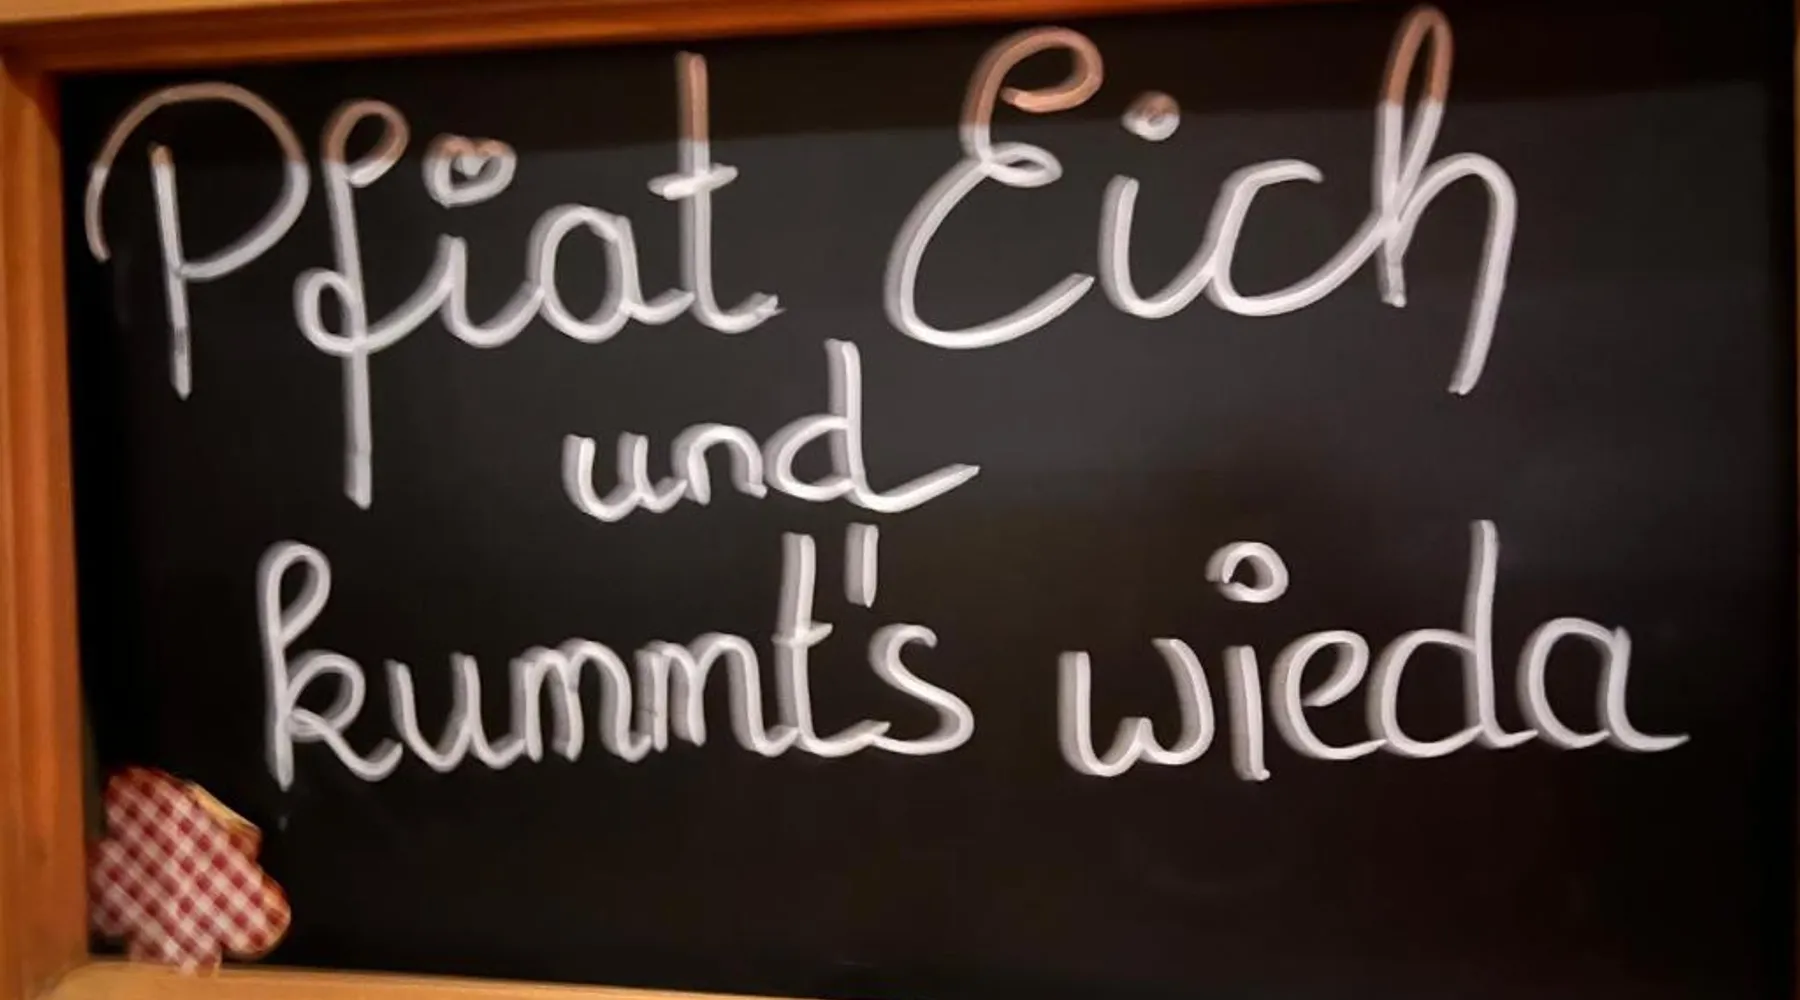 Pfiat Eich
und
kummt's wieda